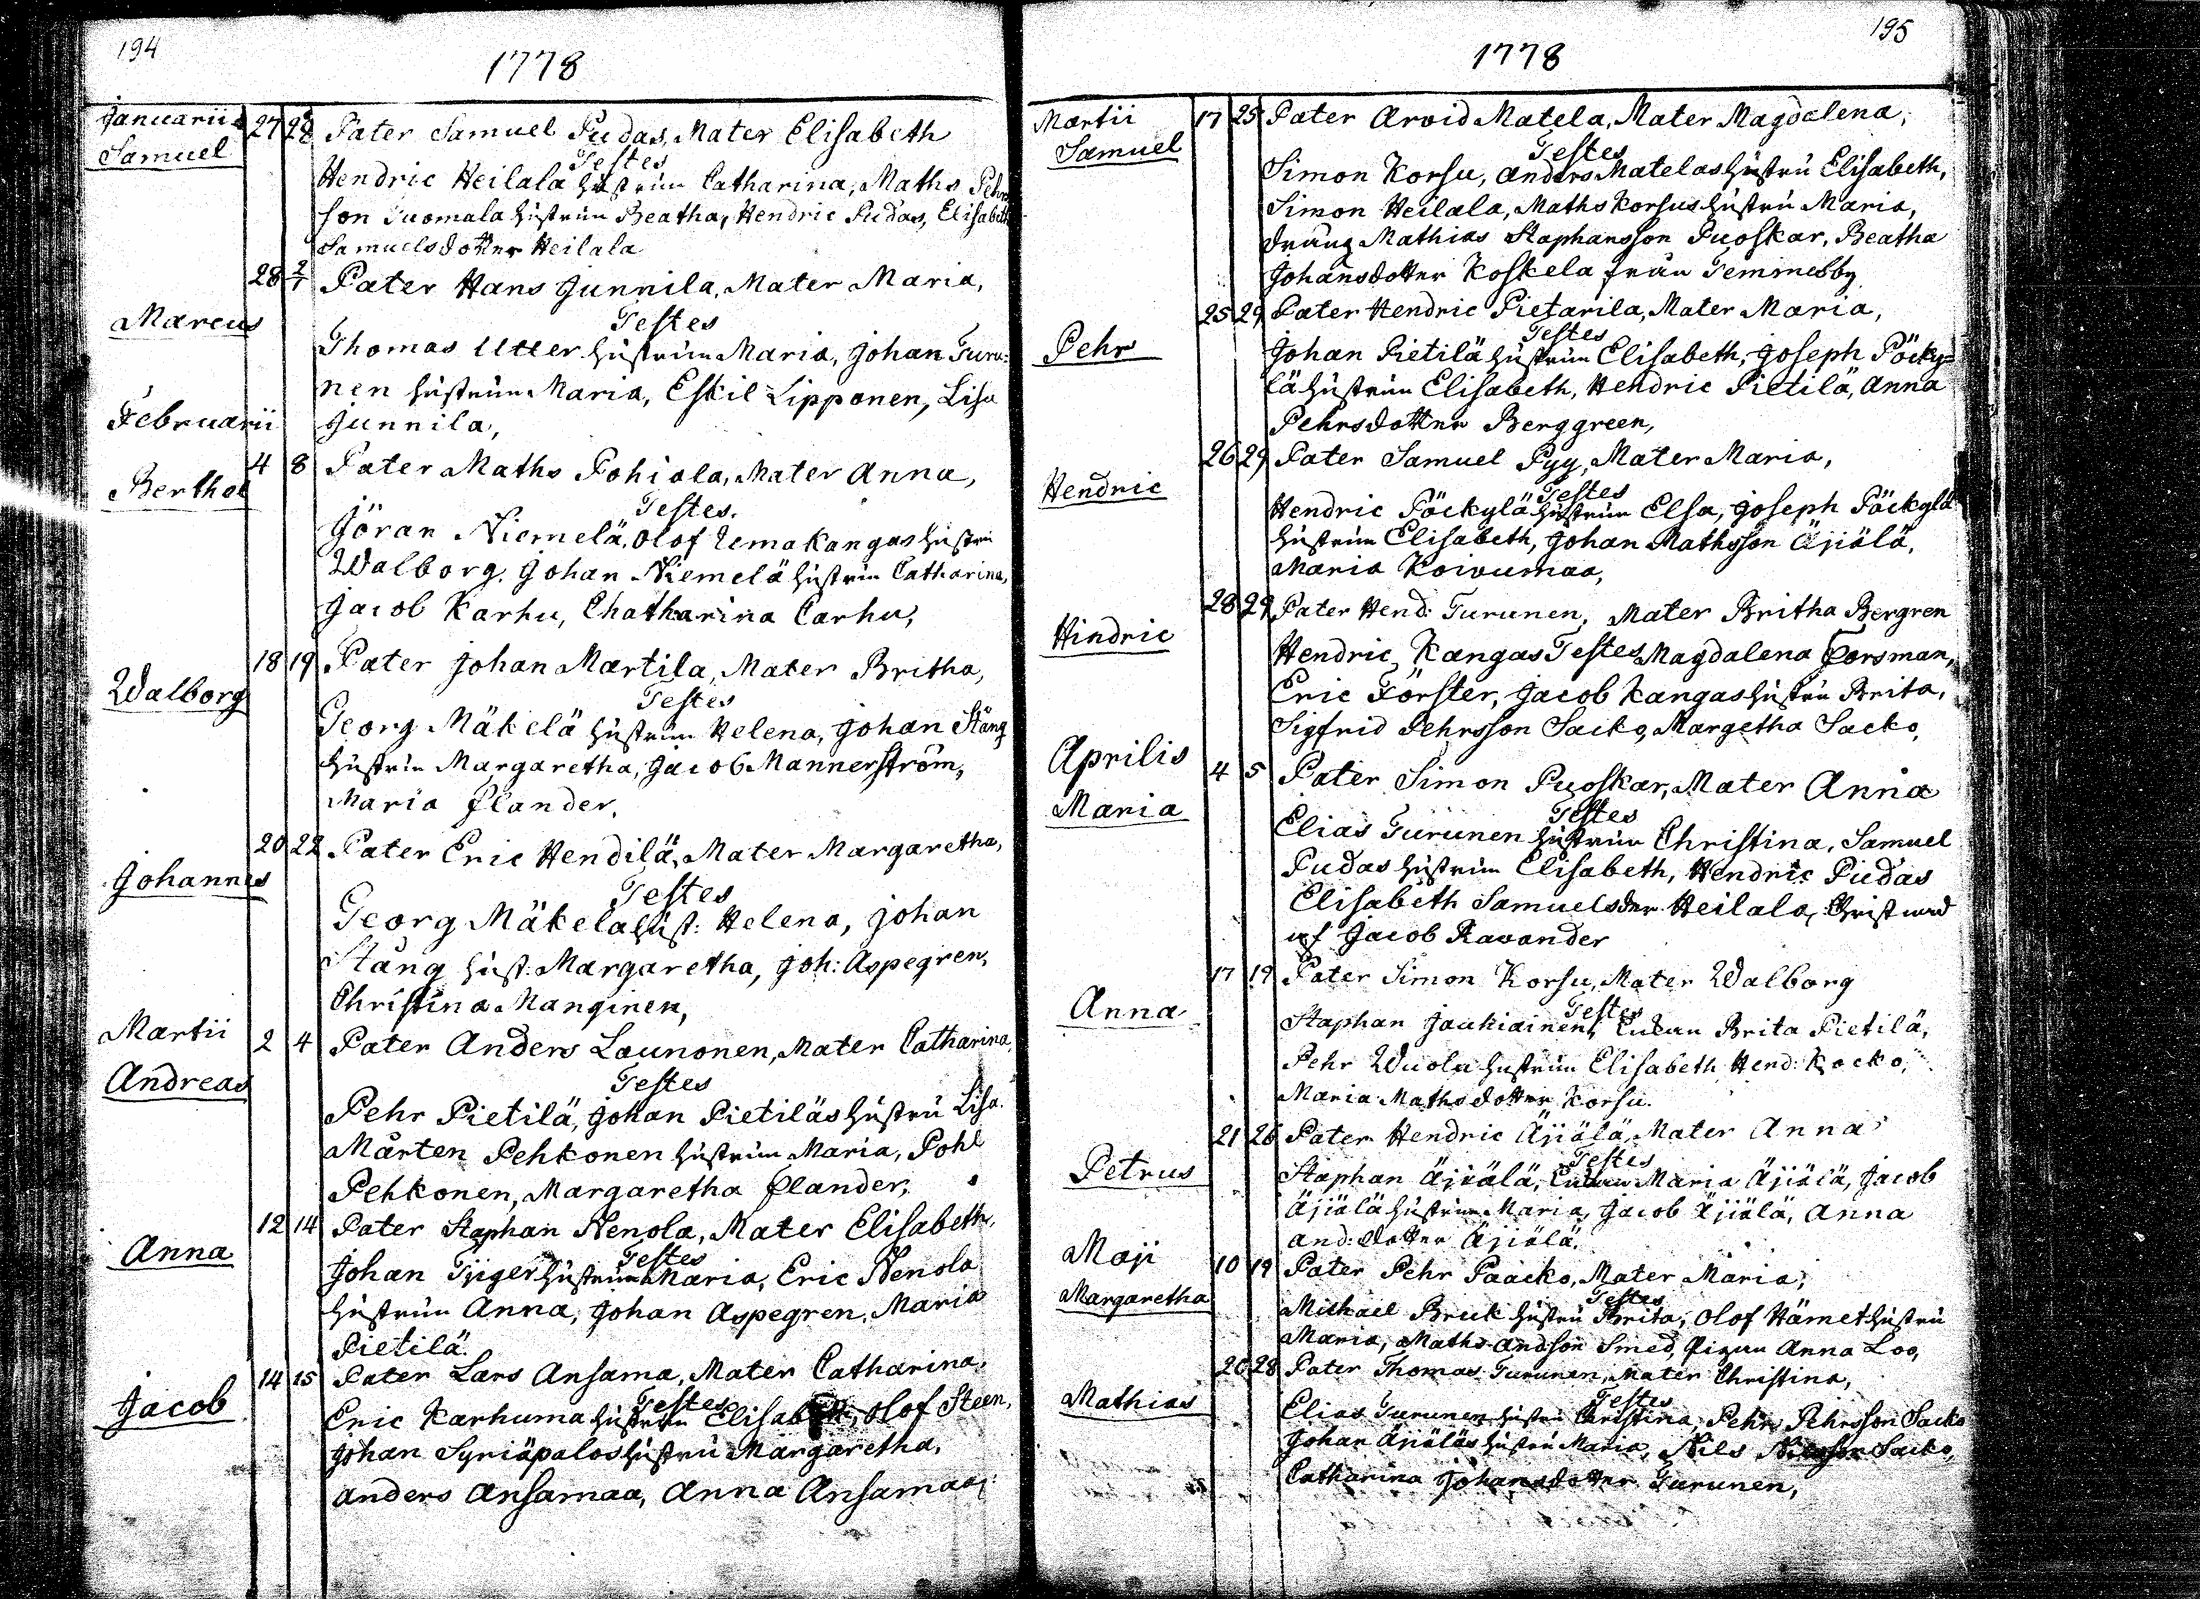 194
1778
Januarii
Samuel 27 28 Pater Samuel Pudas, Mater Elisabeth
Testes
Hendric Heilala hustrun Catharina, Maths Pehrs
son Tuomala hustrun Beatha, Hendric Pudas, Elisabeth
Samuelsdotter Heilala
28 2/1 Pater Hans Junnila, Mater Maria,
Marcus
Testes
Thomas Utter hustrun Maria, Johan Turu=
nen hustrun Maria, Eskil Lipponen, Lisa
Februarii
Junnila,
4 8 Pater Maths Pohiola, Mater Anna,
Berthel
Testes.
Jöran Niemelä, Olof Uemakangas hustru
Walborg, Johan Niemelä hustrun Catharina,
Jacob Karhu, Chatharina Carhu,
18 19 Pater Johan Martila, Mater Britha,
Walborg
Testes
Georg Mäkelä hustrun Helena, Johan Stång
hustrun Margaretha, Jacob Mannerström,
Maria flander.
20 22 Pater Eric Hendilä, Mater Margaretha,
Johannes
Testes
Georg Mäkela hust: Helena, Johan
Stång hust: Margaretha, Joh: Aspegren,
Christina Manginen,
Martii
2 4 Pater Anders Launonen, Mater Catharina,
Andreas
Testes
Pehr Pietilä, Johan Pietiläs hustru Lisa.
Mårten Pehkonen hustrun Maria, Pohl
Pehkonen, Margaretha flander,
12 14 Pater Staphan Nenola, Mater Elisabeth,
Anna
Testes
Johan Tjiger hustrun Maria, Eric Nenola
hustrun Anna, Johan Aspegren, Maria
Pietilä.
14 15 Pater Lars Ansama, Mater Catharina,
Jacob
Testes
Eric Karhuma hustrun Elisabeth, Olof Steen,
Johan Syriäpalos hustru Margaretha,
Anders Ansamaa, Anna Ansamaa,
195
1778
Martii 17 25 Pater Arvid Matela, Mater Magdalena,
Samuel
Testes
Simon Korsu, Anders Matelas hustru Elisabeth,
Simon Heilala, Maths Korsus hustru Maria,
dräng Mathias Staphansson Puoskar, Beatha
Johansdotter Koskela från Temmesby
25 29 Pater Hendric Pietarila, Mater Maria,
Pehr
Testes
Johan Pietilä hustrun Elisabeth, Joseph Pöcky=
lä hustrun Elisabeth, Hendric Pietilä, Anna
Pehrsdotter Berggreen,
26 29 Pater Samuel Pyy, Mater Maria,
Hendric
Testes
Hendric Pöckylä hustrun Elsa, Joseph Pöckylä
hustrun Elisabeth, Johan Mathsson Äjiälä,
Maria Koivumaa,
28 29 Pater Hend: Turunen, Mater Britha Bergren
Hindric
Hendric Kangas Testes Magdalena Forsman,
Eric Förster, Jacob Kangas hustru Brita,
Sigfrid Pehrsson Sacko, Margetha Sacko,
Aprilis
4 5 Pater Simon Puoskar, Mater Anna
Maria
Testes
Elias Turunen hustrun Christina, Samuel
Pudas hustrun Elisabeth, Hendric Pudas
Elisabeth Samuelsder Heilala, Christnad
af Jacob Ravander
17 19 Pater Simon Korsu, Mater Walborg
Anna
Testes
Staphan Jaukiainen, Enkan Brita Pietilä,
Pehr Wuola hustrun Elisabeth, Hend: Kocko,
Maria Mathsdotter Korsu.
21 26 Pater Hendric Äjiälä, Mater Anna
Petrus
Testes
Staphan Äjiälä, Enkan Maria Äjiälä, Jacob
Äjiälä hustrun Maria, Jacob Äjiälä, Anna
And:dotter Äjiälä.
Maji
10 19 Pater Pehr Paacko, Mater Maria,
Margaretha
Testes
Michael Bruk hustru Brita, Olof Hämet hustru
Maria, Maths Andsson Smed, Pigan Anna Loo,
20 28 Pater Thomas Turunen, Mater Christina,
Mathias
Testes
Elias Turunen hustru Christina, Pehr Pehrsson Sacko
Johan Äjiäläs hustru Maria, Nils Nilsson Sacko,
Catharina Johansdotter Turunen,